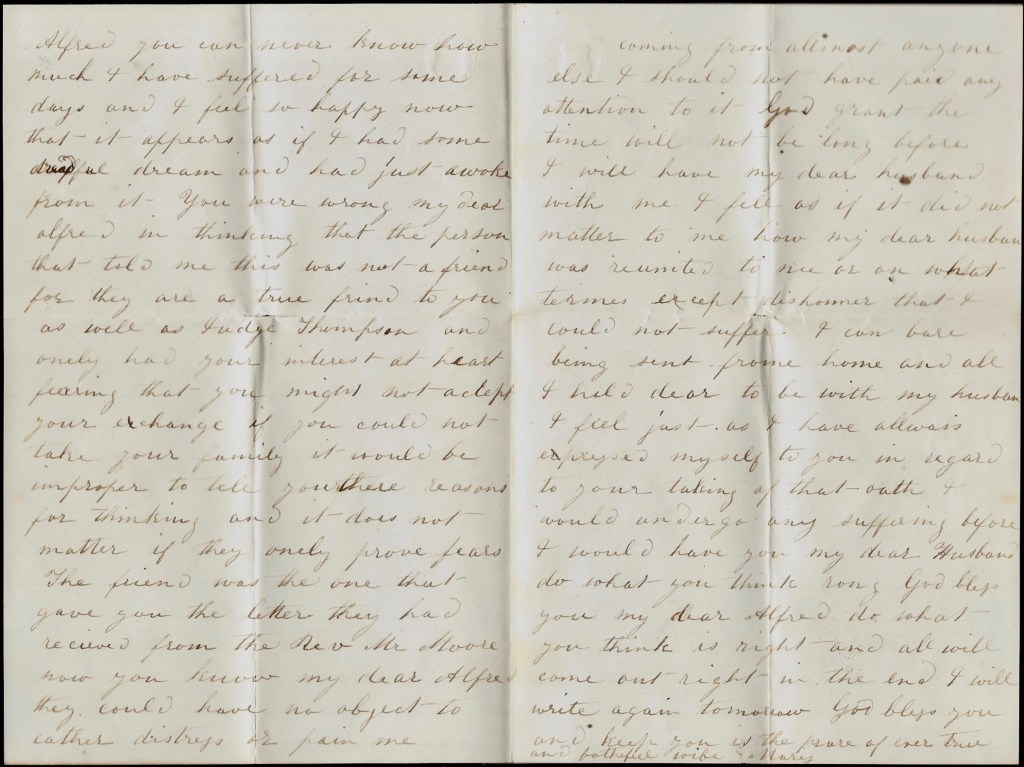 Alfred you can never know how
much I have suffered for some
days and I feel so happy now
that it appears as if I had some
dreadful dream and had just awoke
from it You were wrong my dear
alfred in thinking that the person
that told me this was not a friend
for they are a true frind to you
as well as Judge Thompson and
onely had your interest at heart
fearing that you might not accept
your exchange if you could not
take your family it would be
improper to tell you there reasons
for thinking and it does not
matter if they onely prove fears
The friend was the one that
gave you the letter they had
recieved from the Rev Mr Moore
now you know my dear Alfred
they could have no object to
eather distress or pain me
coming from allmost anyone
else I should not have paid any
attention to it God grant the
time will not be long before
I will have my dear husband
with me I feel as if it did not
matter to me how my dear husban
was reunited to me or on what
termes except dishonner that I
could not suffer. I can bare
being sent frome home and all
I held dear to be with my husban
I feel just as I have allwais
expressed myself to you in regard
to your taking of that oath I
would undergo any suffering before
I would have you my dear Husband
do what you think rong God bless
you my dear Alfred do what
you think is right and all will
come out right in the end I will
write again tomorrow God bless you
and keep you is the prare of ever true
and fathful wife Mary